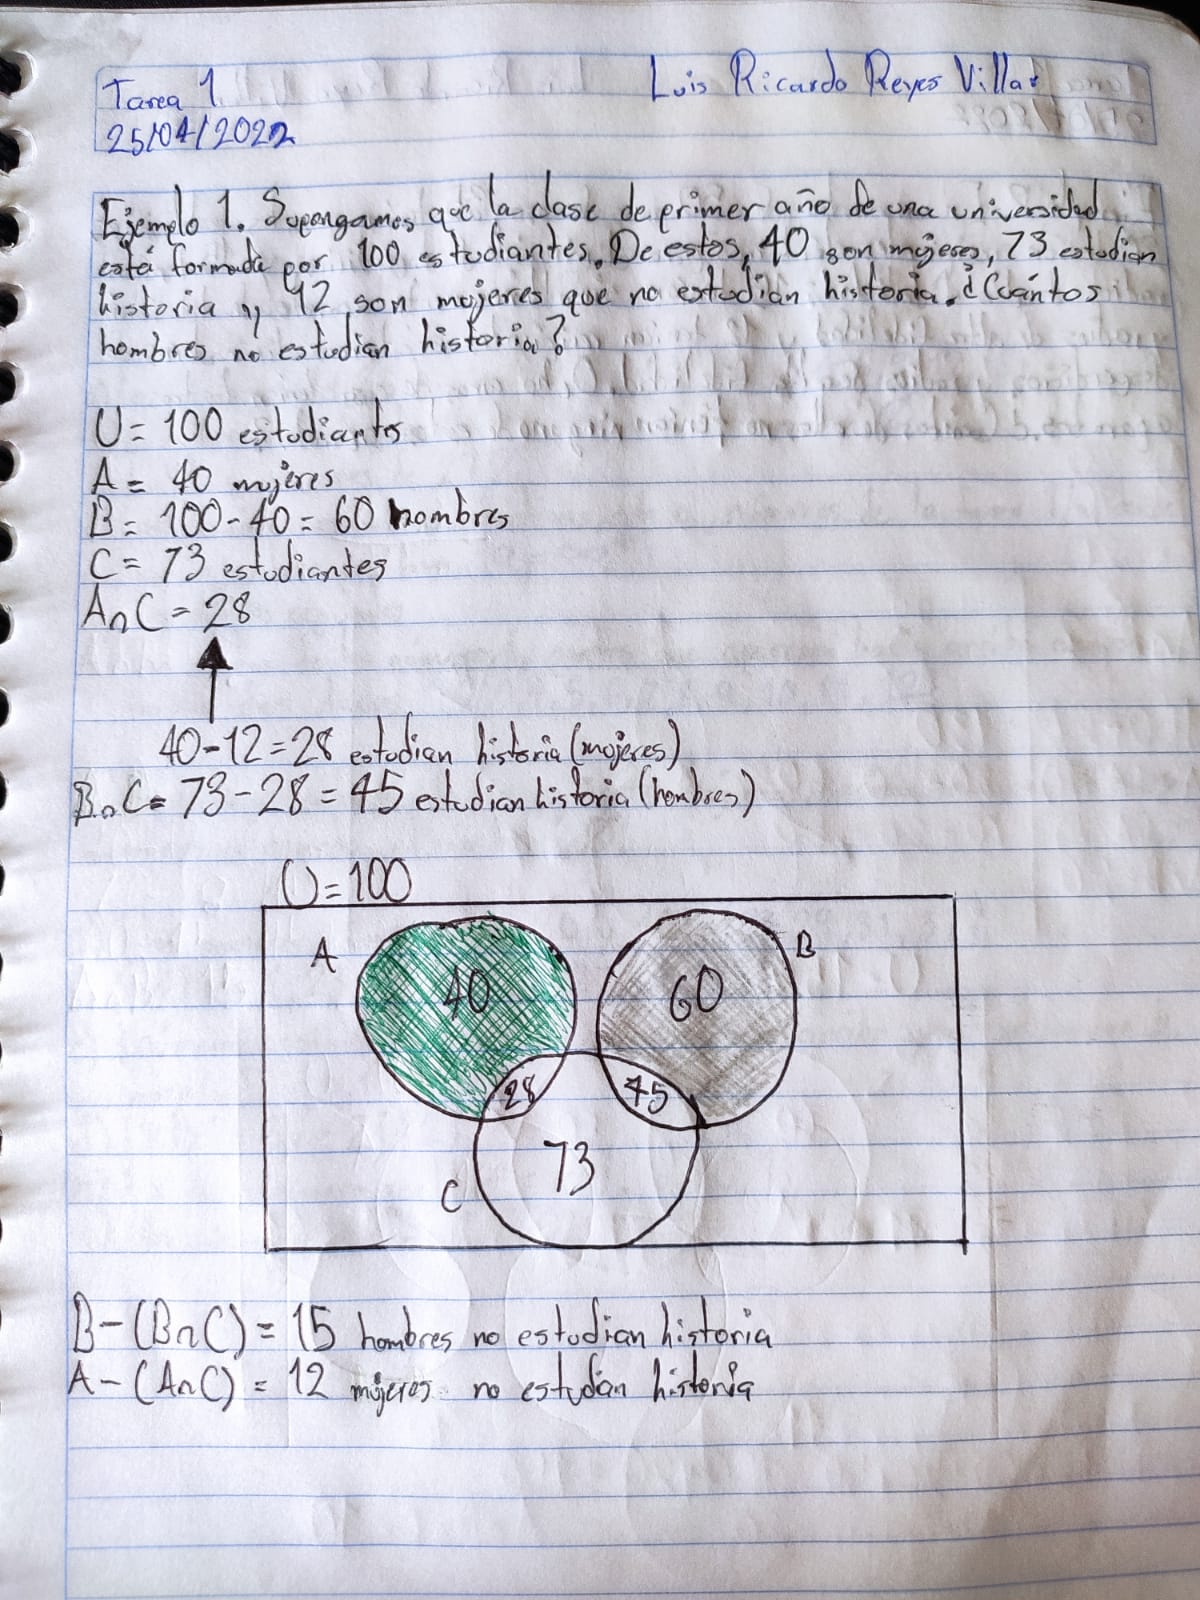 Tarea 1
Luis Ricardo Reyes Villar
25/04/2022
Ejemplo 1. Supongamos que la clase de primer año de una universidad
está formada por 100 estudiantes. De estos, 40 son mujeres, 73 estudian
historia y 12 son mujeres que no estudian historia. ¿Cuántos
hombres no estudian historia?
U = 100 estudiantes
A = 40 mujeres
B = 100 - 40 = 60 hombres
C = 73 estudiantes
A∩C = 28
40 - 12 = 28 estudian historia (mujeres)
B∩C = 73 - 28 = 45 estudian historia (hombres)
U = 100
A
B
40
60
28
45
73
C
B - (B∩C) = 15 hombres no estudian historia
A - (A∩C) = 12 mujeres no estudian historia